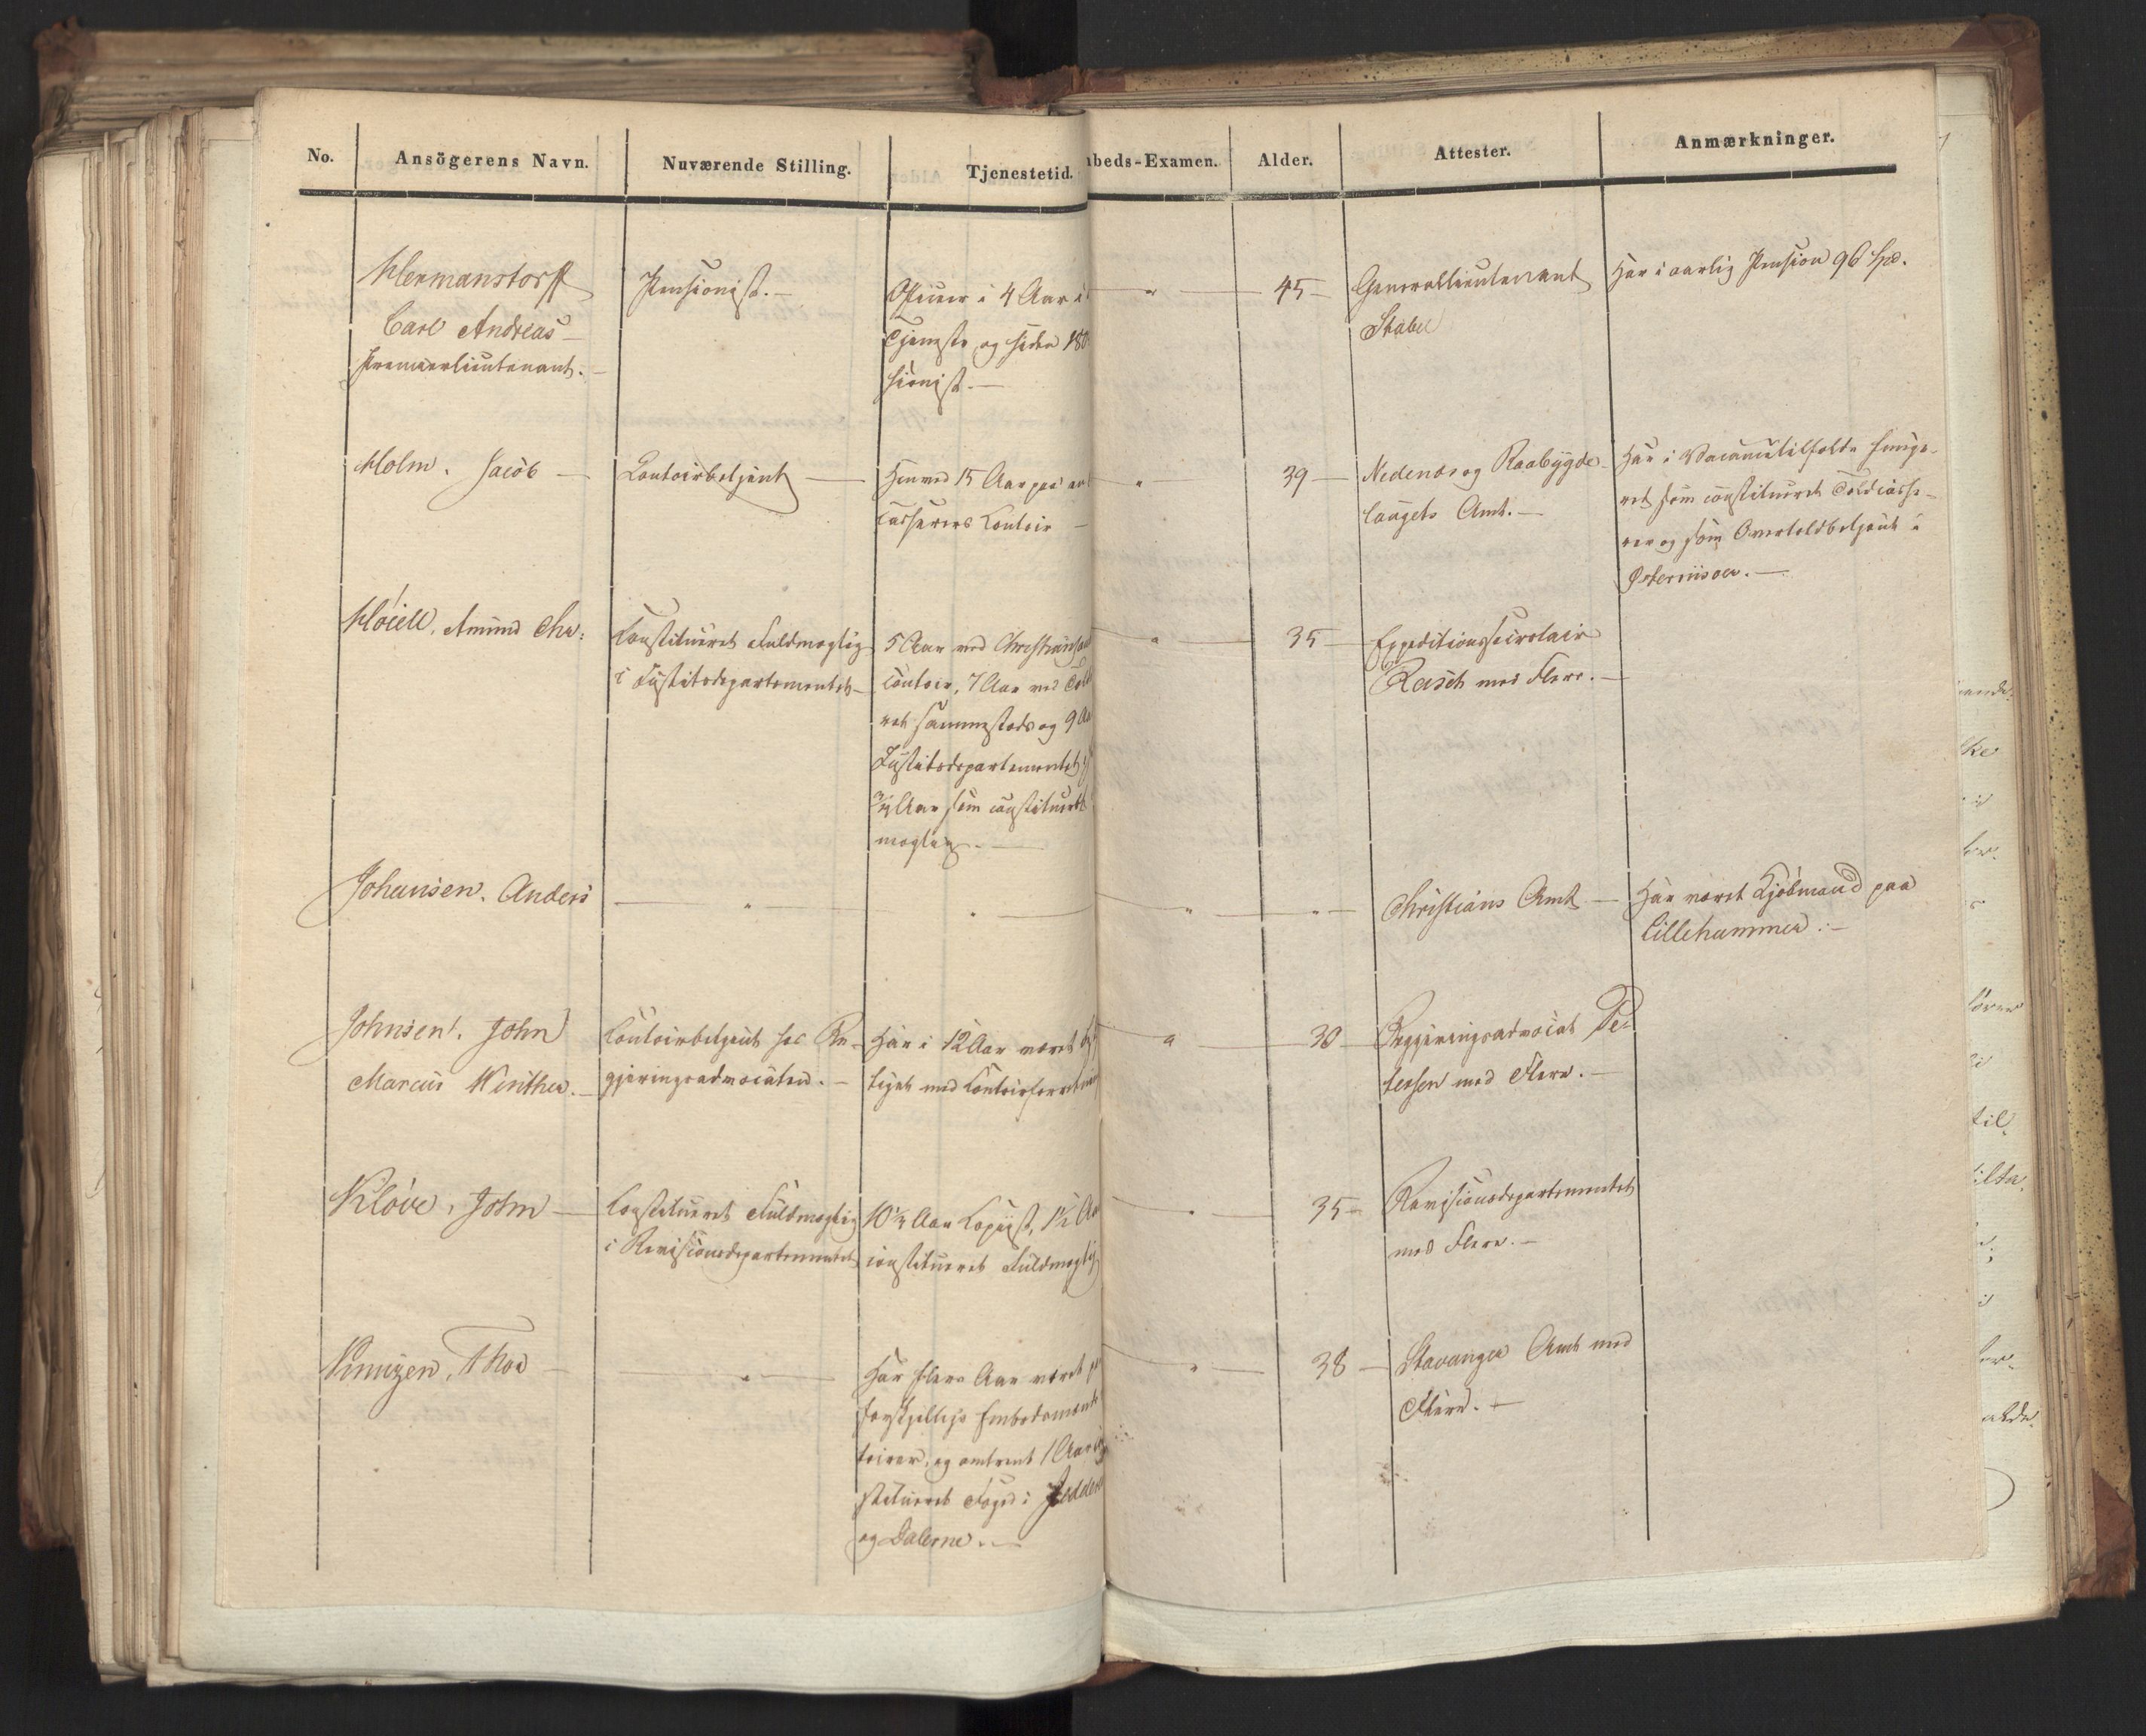 No.
Ansögerens Navn.
Nuværende Stilling.
Tjenestetid.
beds-Examen.
Alder.
Attester.
Anmærkninger.
Hermanstorff
Carl Andreas
Premierlieutenant.
Pensionist. —
Officier i 4 Aar i
Tjeneste og siden 180
sionist. —
"
45 —
Generallieutenant
Stabel
Har i aarlig Pension 96 Spd.
Holm. Jacob —
Contoirbetjent —
Henved 15 Aar paa
casserers Contoir —
"
39 —
Nedenæs og Raabygde-
laugets Amt. —
Har i Vacancetilfælde funge-
ret som constitueret Toldcasse-
rer og som Overtoldbetjent i
Østerriisøer. —
Høiell, Amund Chr:
Constitueret Fuldmægtig
i Justitsdepartementet —
5 Aar ved Christiansand
contoir, 7 Aar ved Told
ret sammesteds og 9 Aar
Justitsdepartementet,
3/4 Aar som constitueret
mægtig. —
"
35 —
Expeditionssecretair
Rasch med Flere. —
Johansen. Anders
"
"
"
" —
Christians Amt —
Har været Kjøbmand paa
Lillehammer. —
Johnsen. John
Marcus Winther. —
Contoirbetjent hos Re-
gjeringsadvocaten. —
Har i 12 Aar været
tiget med Contoirforretning
"
30
Regjeringsadvocat Pe-
tersen med Flere. —
Kløve, John —
Constitueret Fuldmægtig
i Revisionsdepartementet
10 1/2 Aar Copiist, 1 1/2 Aar
constitueret Fuldmægtig
"
35 —
Revisionsdepartementet
med Flere. —
Knudzen, Thor —
"
Har flere Aar været
forskjellige Embedsmænds
toirer, og omtrent 1 Aar
stitueret Foged i Jedderen
og Dalerne. —
"
38 —
Stavanger Amt med
Flere. —